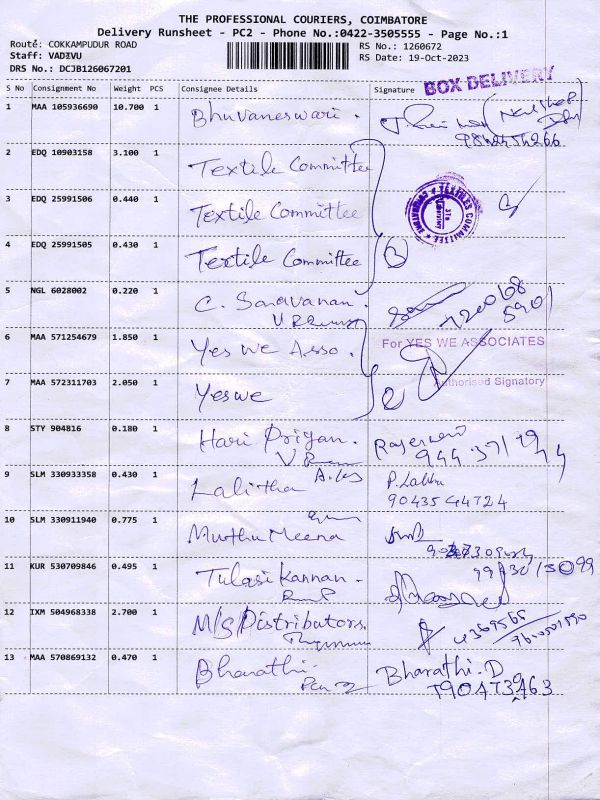 THE PROFESSIONAL COURIERS, COIMBATORE
Delivery Runsheet - PC2 - Phone No.:0422-3505555 - Page No.:1
Route: COKKAMPUDUR ROAD
Staff: VADIVU
DRS No.: DCJB126067201
RS No.: 1260672
RS Date: 19-Oct-2023
BOX DELIVERY
S No Consignment No Weight PCS Consignee Details Signature
1 MAA 105936690 10.700 1 Bhuvaneswari.
9842454266
2 EDQ 10903158 3.100 1 Textile Committee
3 EDQ 25991506 0.440 1 Textile Committee
TEXTILES COMMITTEE
4 EDQ 25991505 0.430 1 Textile Committee 3
5 NGL 6028002 0.220 1 C. Saravanan. 720068
5901
6 MAA 571254679 1.850 1 Yes We Asso.
For YES WE ASSOCIATES
7 MAA 572311703 2.050 1 Yeswe 2
Authorised Signatory
8 STY 904816 0.180 1 Hari Priyan.
9 SLM 330933358 0.430 1 Lalitha
9043544724
10 SLM 330911940 0.775 1 Muthu Meena
11 KUR 530709846 0.495 1 Tulasi Kannan.
12 IXM 504968338 2.700 1 M/S Distributors.
13 MAA 570869132 0.470 1 Bharathi. Bharathi.D